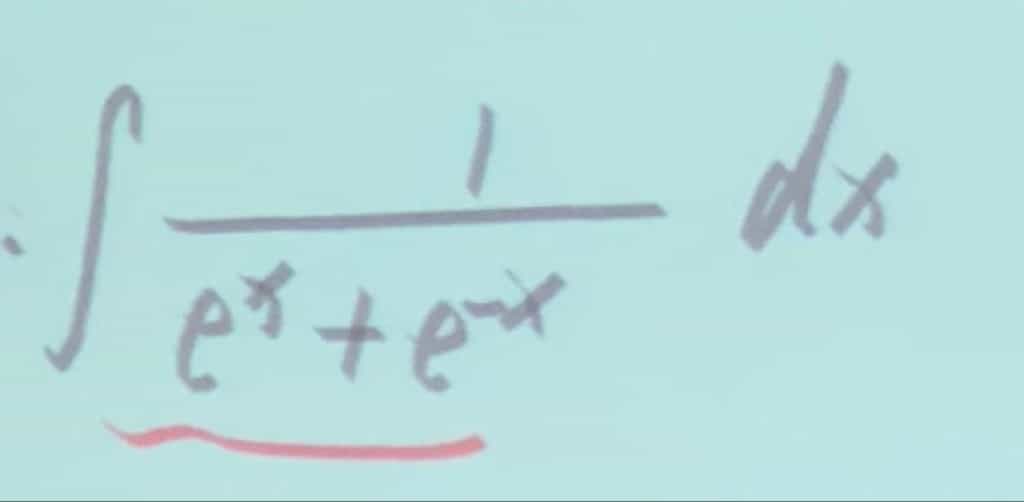 ∫ 1/(e^x + e^-x) dx